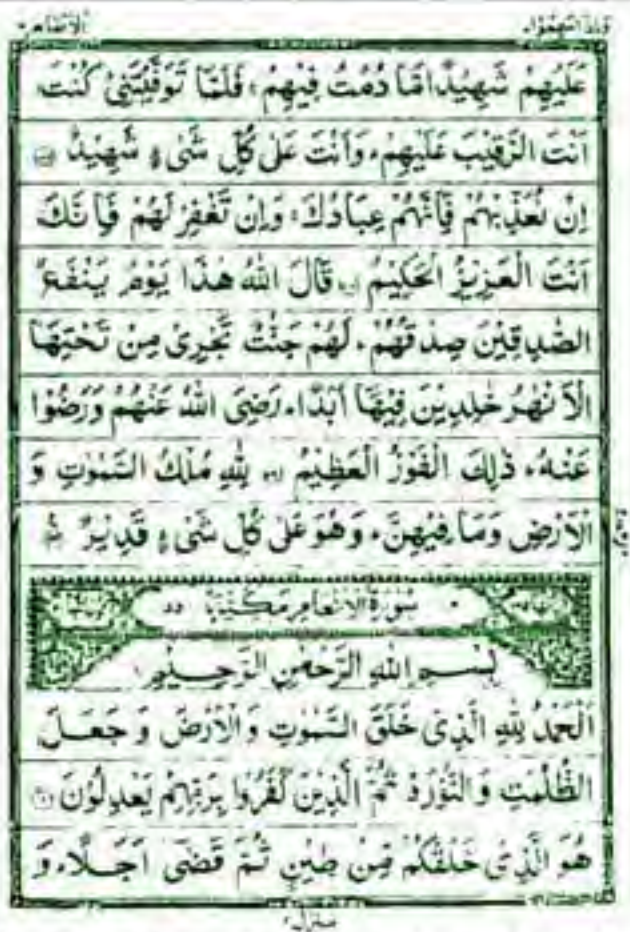 وَاِذَا سَمِعُوْا
الْاَنْعَام
عَلَيْهِمْ شَهِيْدًا مَّا دُمْتُ فِيْهِمْ ۚ فَلَمَّا تَوَفَّيْتَنِيْ كُنْتَ
اَنْتَ الرَّقِيْبَ عَلَيْهِمْ ۚ وَاَنْتَ عَلٰى كُلِّ شَيْءٍ شَهِيْدٌ
اِنْ تُعَذِّبْهُمْ فَاِنَّهُمْ عِبَادُكَ ۚ وَاِنْ تَغْفِرْ لَهُمْ فَاِنَّكَ
اَنْتَ الْعَزِيْزُ الْحَكِيْمُ قَالَ اللّٰهُ هٰذَا يَوْمُ يَنْفَعُ
الصّٰدِقِيْنَ صِدْقُهُمْ ۚ لَهُمْ جَنّٰتٌ تَجْرِيْ مِنْ تَحْتِهَا
الْاَنْهٰرُ خٰلِدِيْنَ فِيْهَا اَبَدًا ۚ رَضِيَ اللّٰهُ عَنْهُمْ وَرَضُوْا
عَنْهُ ۚ ذٰلِكَ الْفَوْزُ الْعَظِيْمُ لِلّٰهِ مُلْكُ السَّمٰوٰتِ وَ
الْاَرْضِ وَمَا فِيْهِنَّ ۚ وَهُوَ عَلٰى كُلِّ شَيْءٍ قَدِيْرٌ
سُوْرَةُ الْاَنْعَامِ مَكِّيَّةٌ ٥٥
بِسْمِ اللّٰهِ الرَّحْمٰنِ الرَّحِيْمِ
اَلْحَمْدُ لِلّٰهِ الَّذِيْ خَلَقَ السَّمٰوٰتِ وَالْاَرْضَ وَجَعَلَ
الظُّلُمٰتِ وَالنُّوْرَ ۬ ثُمَّ الَّذِيْنَ كَفَرُوْا بِرَبِّهِمْ يَعْدِلُوْنَ
هُوَ الَّذِيْ خَلَقَكُمْ مِّنْ طِيْنٍ ثُمَّ قَضٰى اَجَلًا ۚ وَ
منزل